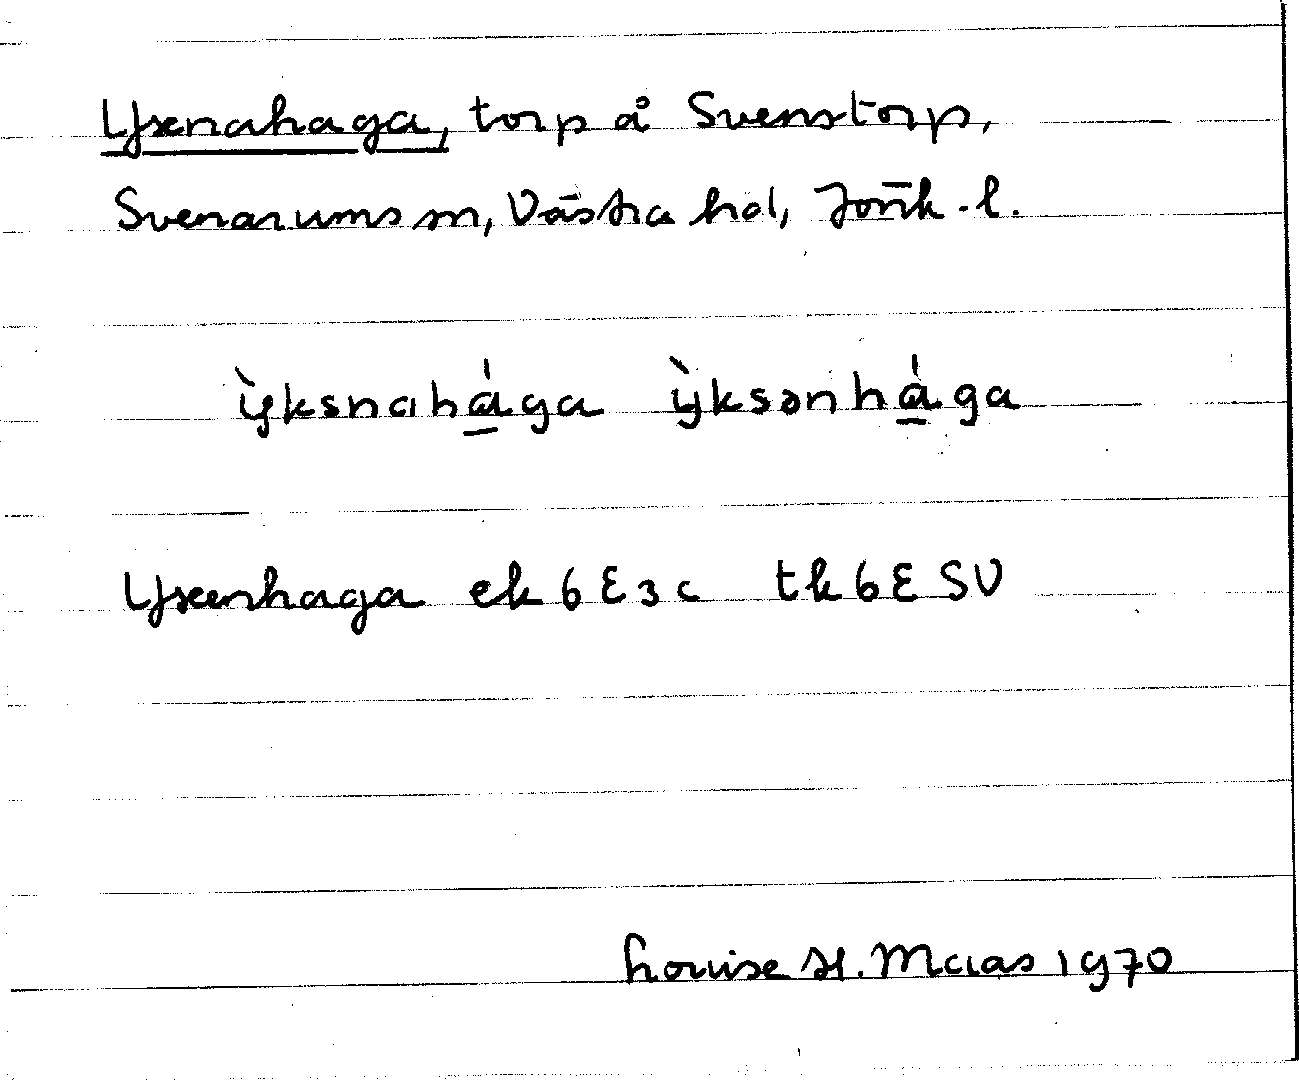 Yxenahaga, torp å Svenstorp,
Svenarums sn, Västra hd, Jönk. l.
ỳksnahá̱ga ỳksənhá̱ga
Yxenhaga ek 6 E 3 c tk 6 E SV
Louise H. Maas 1970